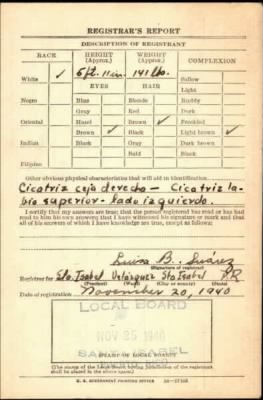 REGISTRAR'S REPORT
DESCRIPTION OF REGISTRANT
RACE HEIGHT (Approx.) WEIGHT (Approx.) COMPLEXION
White ✓ 5 ft. 11 in. 141 lbs. Sallow
Light
EYES HAIR
Negro Blue Blonde Ruddy
Gray Red Dark
Oriental Hazel Brown ✓ Freckled
Brown ✓ Black Light brown ✓
Indian Black Gray Dark brown
Bald Black
Filipino
Other obvious physical characteristics that will aid in identification
Cicatriz ceja derecha — Cicatriz la-
bio superior - lado izquierdo.
I certify that my answers are true; that the person registered has read or has had
read to him his own answers; that I have witnessed his signature or mark and that
all of his answers of which I have knowledge are true, except as follows:
Luisa B. Suárez
(Signature of registrar)
Registrar for Sta Isabel Velázquez Sta Isabel PR
(Precinct) (Ward) (City or county) (State)
Date of registration November 20, 1940
LOCAL BOARD
NOV 25 1940
(STAMP OF LOCAL BOARD)
(The stamp of the Local Board having jurisdiction of the registrant
shall be placed in the above space.)
U. S. GOVERNMENT PRINTING OFFICE